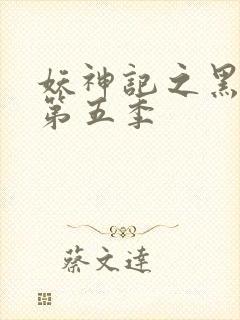 妖神記之黑
第五季
蔡文達